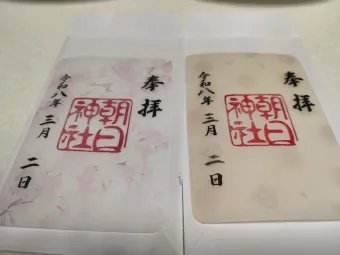 奉拝
朝日神社
令和八年 三月 二日
奉拝
朝日神社
令和八年 三月 二日